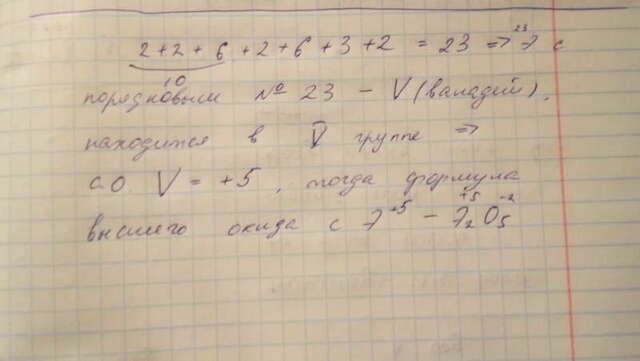 2+2+6+2+6+3+2 = 23 => Э с
порядковым № 23 - V (ванадий).
находится в V группе =>
с.о V = +5, тогда формула
высшего оксида с Э⁺⁵ - Э₂⁺⁵O₅⁻²